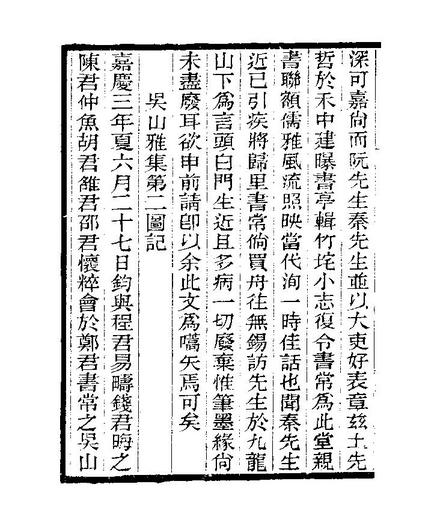 深可嘉尙而阮先生秦先生並以大吏好表章玆土先
哲於禾中建曝書亭輯竹垞小志復令書常爲此堂親
書聯額儒雅風流照映當代洵一時佳話也聞秦先生
近已引疾將歸里書常倘買舟往無錫訪先生於九龍
山下爲言頭白門生近且多病一切廢棄惟筆墨緣尙
未盡廢耳欲申前請卽以余此文爲嚆矢焉可矣
吳山雅集第二圖記
嘉慶三年夏六月二十七日鈞與程君易疇錢君晦之
陳君仲魚胡君雒君邵君懷粹會於鄭君書常之吳山